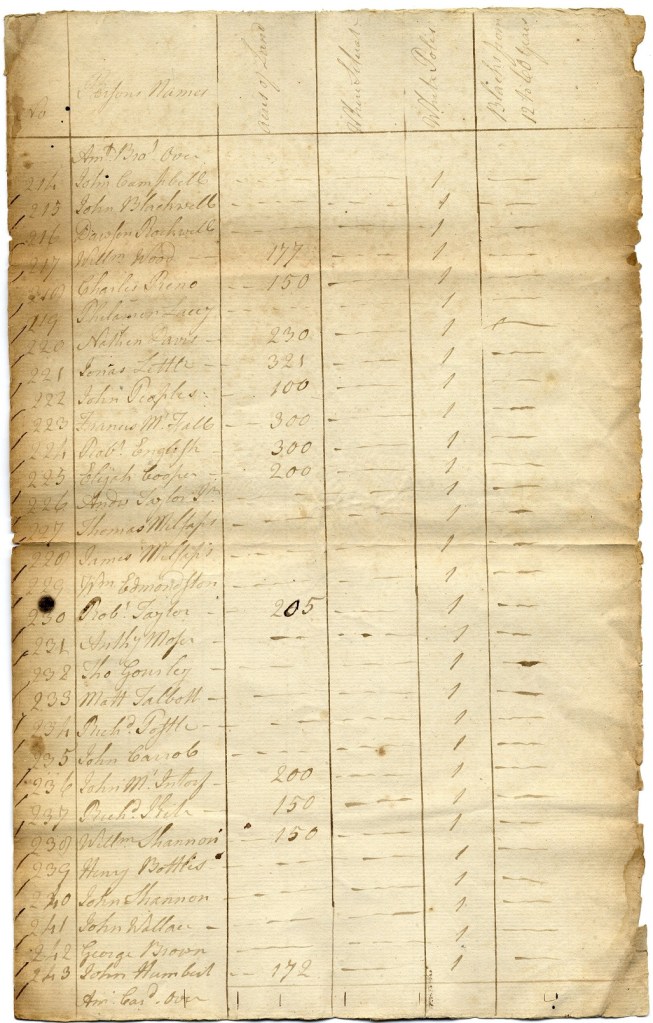 No Persons Names Acres of Land Where Situate White Poles Blacks from 12 to 60 Years
Amt Brot Over
214 John Campbell - - - - - - - 1 - -
215 John Blackwell - - - - - - 1 - -
216 Dawson Rockwell - - - - - - 1 - -
217 Willm Wood - - 177 - - - 1 - -
218 Charles Reno - 150 - - - 1 - -
219 Philamon Lacey - - - - - - 1 - -
220 Nathan Davis - 230 - - - 1 - -
221 Jonas Little - 321 - - - 1 - -
222 John Peoples - 100 - - - 1 - -
223 Francis McFall - 300 - - - 1 - -
224 Robt English - 300 - - - 1 - -
225 Elijah Cooper - 200 - - - 1 - -
226 Andw Taylor Jr - - - - - - 1 - -
227 Thomas Millsaps - - - - - - 1 - -
228 James Millsaps - - - - - - 1 - -
229 Wm Edmondston - - - - - - 1 - -
230 Robt Taylor - 205 - - - 1 - -
231 Anthy Moser - - - - - - 1 - -
232 Tho Gourley - - - - - - 1 - -
233 Matt Talbott - - - - - - 1 - -
234 Richd - - - - - - 1 - -
235 John - - - - - - 1 - -
236 John 200 - - - 1 - -
237 Richd 150 - - - 1 - -
238 Willm Shannon - 150 - - - 1 - -
239 Henry Bottles - - - - - - 1 - -
240 John Shannon - - - - - - 1 - -
241 John Wallace - - - - - - 1 - -
242 George Brown - - - - - - 1 - -
243 John Humbert - - 172 - - - 1 - -
Amt Card Over